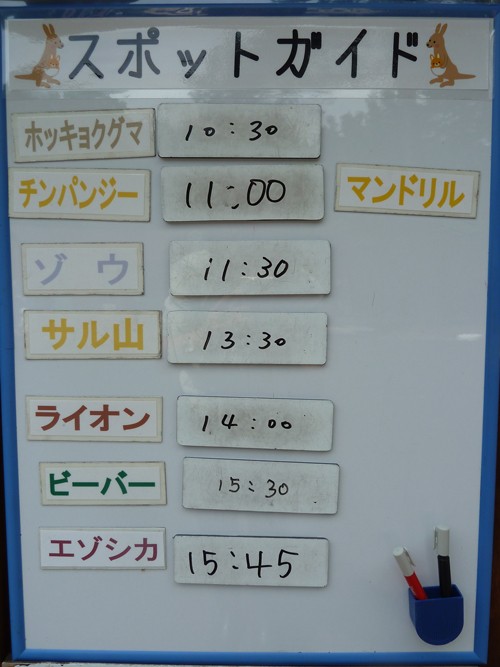 スポットガイド
ホッキョクグマ 10:30
チンパンジー 11:00 マンドリル
ゾウ 11:30
サル山 13:30
ライオン 14:00
ビーバー 15:30
エゾシカ 15:45